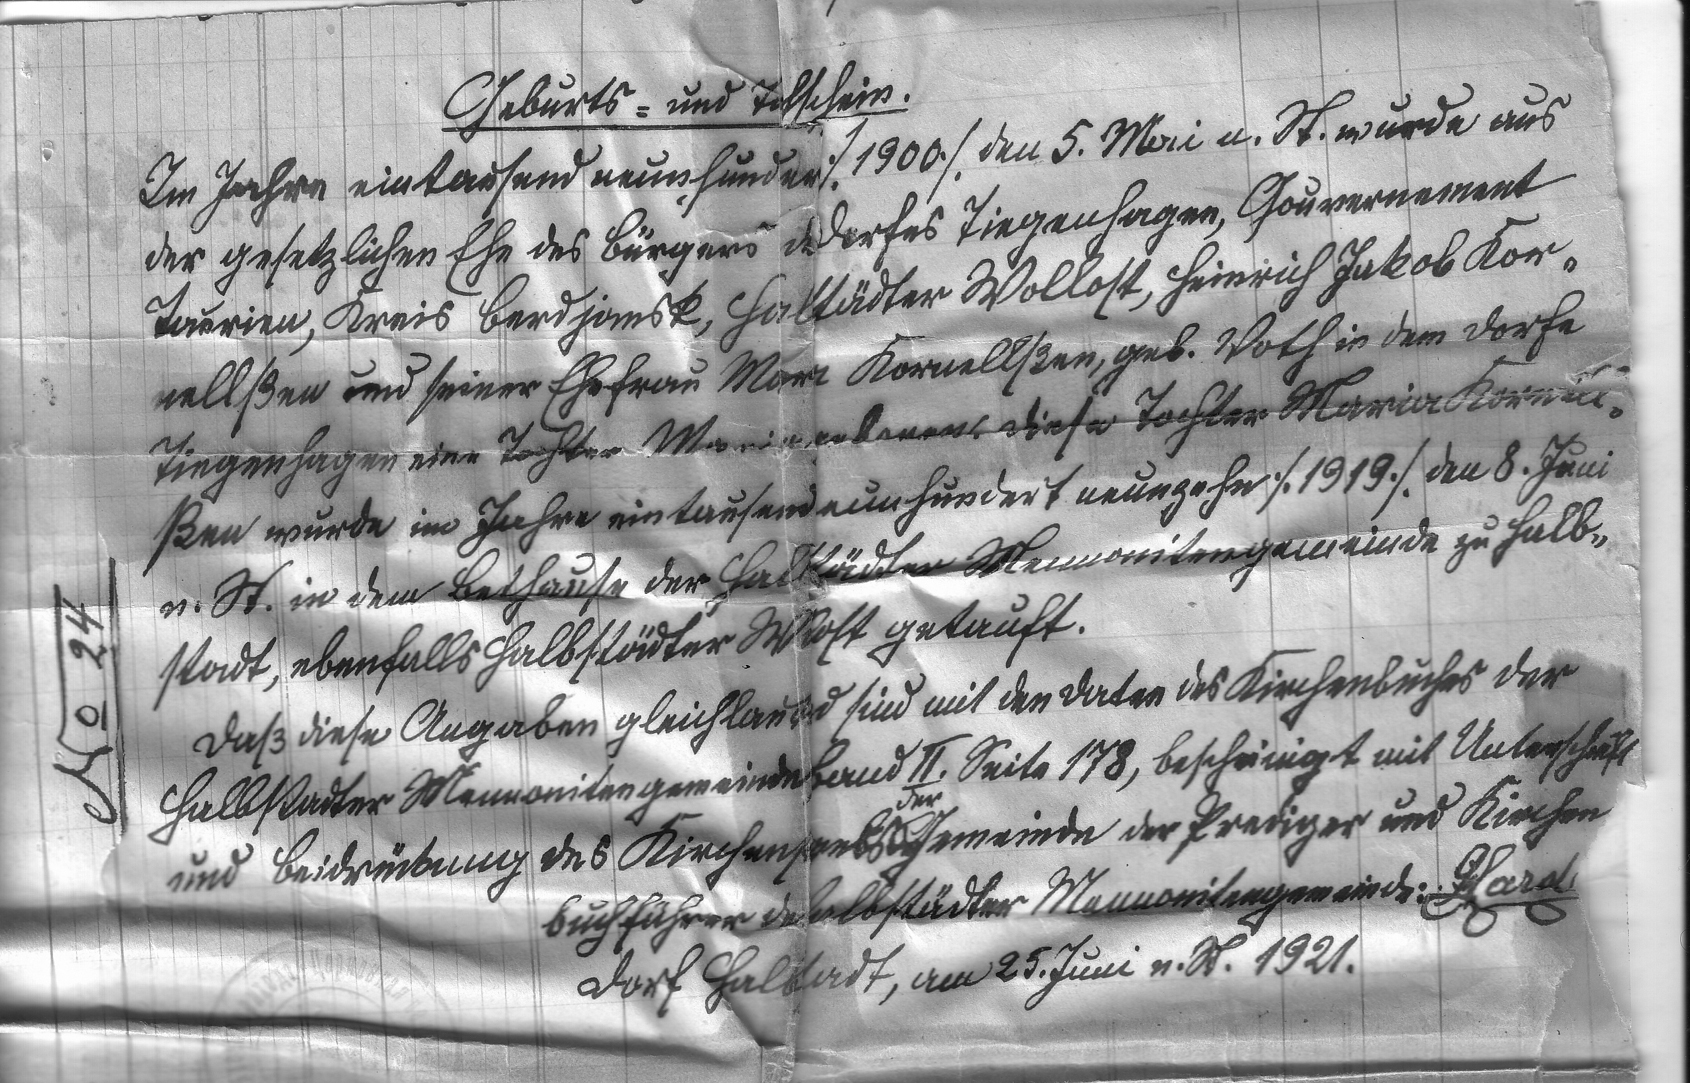 Geburts = und Tofschein.
Im Jahre eintausend neunhundert ./. 1900 ./. den 5. Mai n. St. wurde aus
der gesetzlichen Ehe des Bürgers d. Dorfes Tiegenhagen, Gouvernement
Taurien, Kreis Berdjansk, Halbstädter Wollost, Heinrich Jakob Kor-
nellßen und seiner Ehefrau Maria Kornellßen, geb. Voth in dem Dorfe
Tiegenhagen eine Tochter Maria geboren. Diese Tochter Maria Kornell-
ßen wurde im Jahre eintausend neunhundert neunzehn ./. 1919 ./. den 8. Juni
n. St. in dem Bethause der Halbstädter Mennonitengemeinde zu Halb-
stadt, ebenfalls Halbstädter Wollost getauft.
Daß diese Angaben gleichlautend sind mit den Daten des Kirchenbuches der
Halbstädter Mennonitengemeinde Band II. Seite 178, bescheinigt mit Unterschrift
und Beidrückung des Kirchensiegels der Gemeinde der Prediger und Kirchen
buchführer der Halbstädter Mennonitengemeinde:
Dorf Halbstadt, am 25. Juni n. St. 1921.
No 24